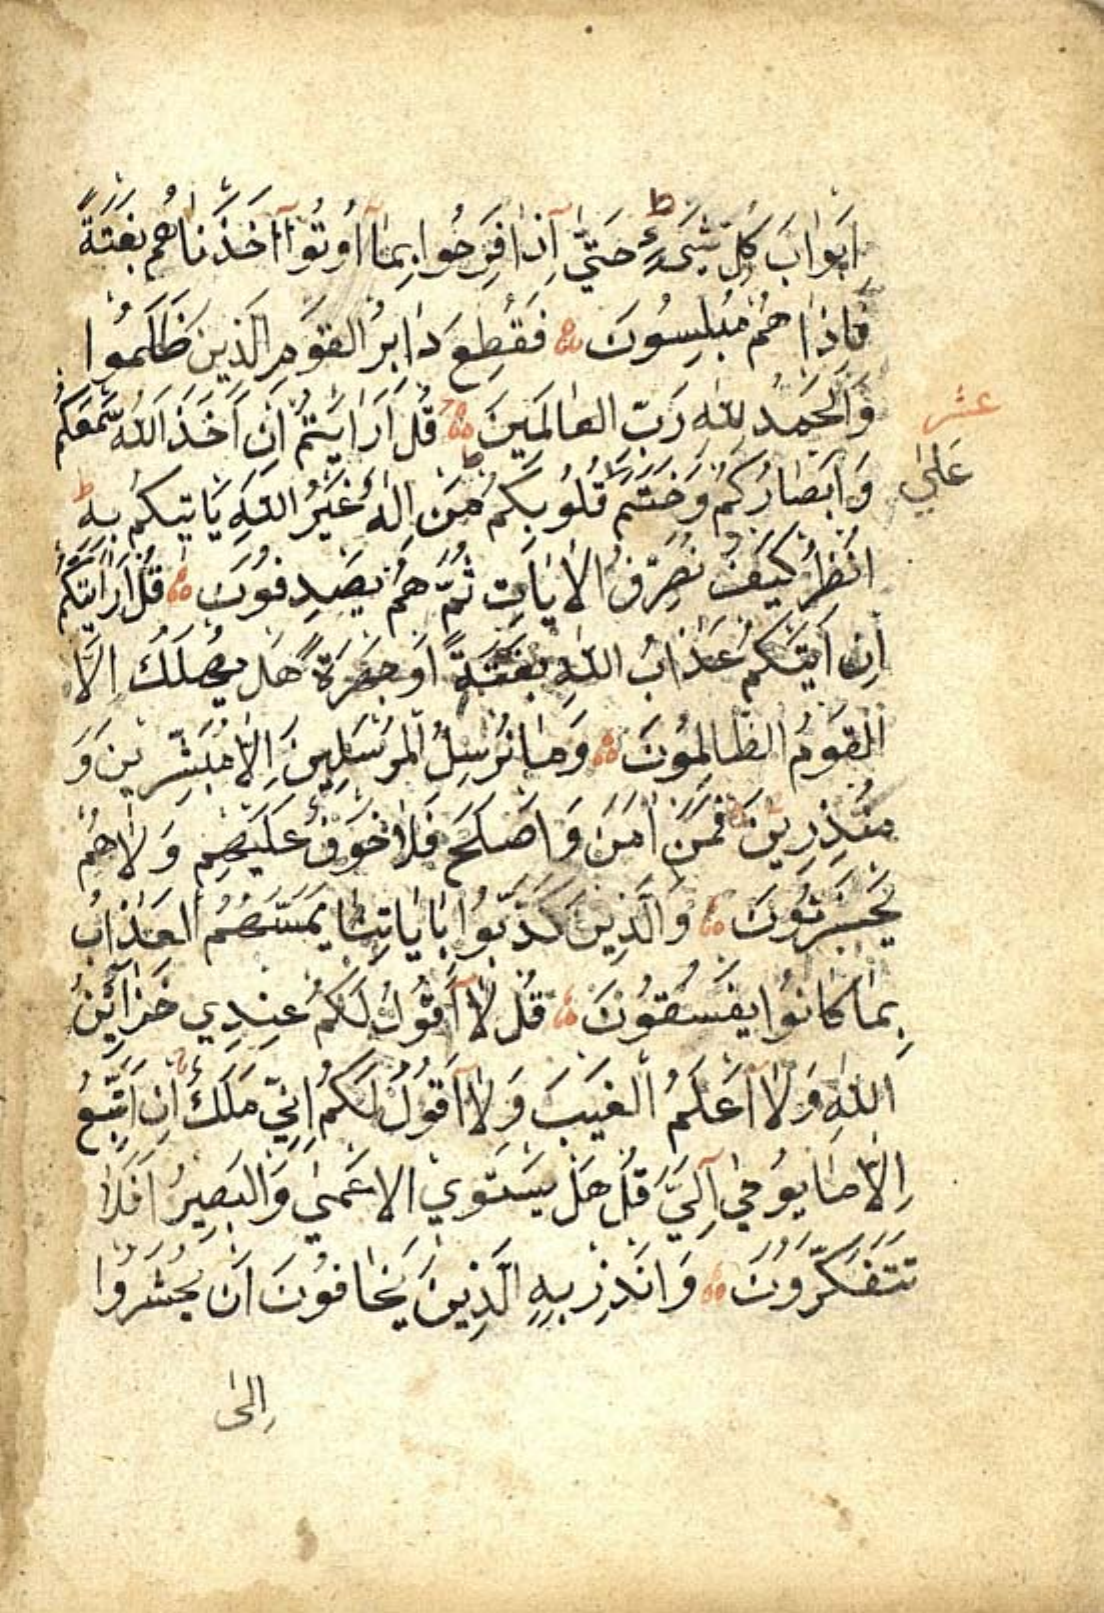 اَبْوَابَ كُلِّ شَيْءٍ ط حَتّٰى اِذَا فَرِحُوا بِمَا اُوتُوا اَخَذْنَاهُمْ بَغْتَةً
فَاِذَا هُمْ مُبْلِسُونَ فَقُطِعَ دَابِرُ الْقَوْمِ الَّذِينَ ظَلَمُوا
وَالْحَمْدُ لِلّٰهِ رَبِّ الْعَالَمِينَ قُلْ اَرَاَيْتُمْ اِنْ اَخَذَ اللّٰهُ سَمْعَكُمْ
عشر
وَاَبْصَارَكُمْ وَخَتَمَ قُلُوبِكُمْ مَنْ اِلٰهٌ غَيْرُ اللّٰهِ يَاْتِيكُمْ بِهِ ط
عَلٰي
انْظُرْ كَيْفَ نُصَرِّفُ الْاٰيَاتِ ثُمَّ هُمْ يَصْدِفُونَ قُلْ اَرَاَيْتَكُمْ
اِنْ اَتٰيكُمْ عَذَابُ اللّٰهِ بَغْتَةً اَوْ جَهْرَةً هَلْ يُهْلَكُ اِلَّا
الْقَوْمُ الظَّالِمُونَ وَمَا نُرْسِلُ الْمُرْسَلِينَ اِلَّا مُبَشِّرِينَ وَ
مُنْذِرِينَ فَمَنْ اٰمَنَ وَاَصْلَحَ فَلَا خَوْفٌ عَلَيْهِمْ وَلَا هُمْ
يَحْزَنُونَ وَالَّذِينَ كَذَّبُوا بِاٰيَاتِنَا يَمَسُّهُمُ الْعَذَابُ
بِمَا كَانُوا يَفْسُقُونَ قُلْ لَا اَقُولُ لَكُمْ عِنْدِي خَزَائِنُ
اللّٰهِ وَلَا اَعْلَمُ الْغَيْبَ وَلَا اَقُولُ لَكُمْ اِنِّي مَلَكٌ اِنْ اَتَّبِعُ
اِلَّا مَا يُوحٰي اِلَيَّ قُلْ هَلْ يَسْتَوِي الْاَعْمٰي وَالْبَصِيرُ اَفَلَا
تَتَفَكَّرُونَ وَاَنْذِرْ بِهِ الَّذِينَ يَخَافُونَ اَنْ يُحْشَرُوا
اِلٰى